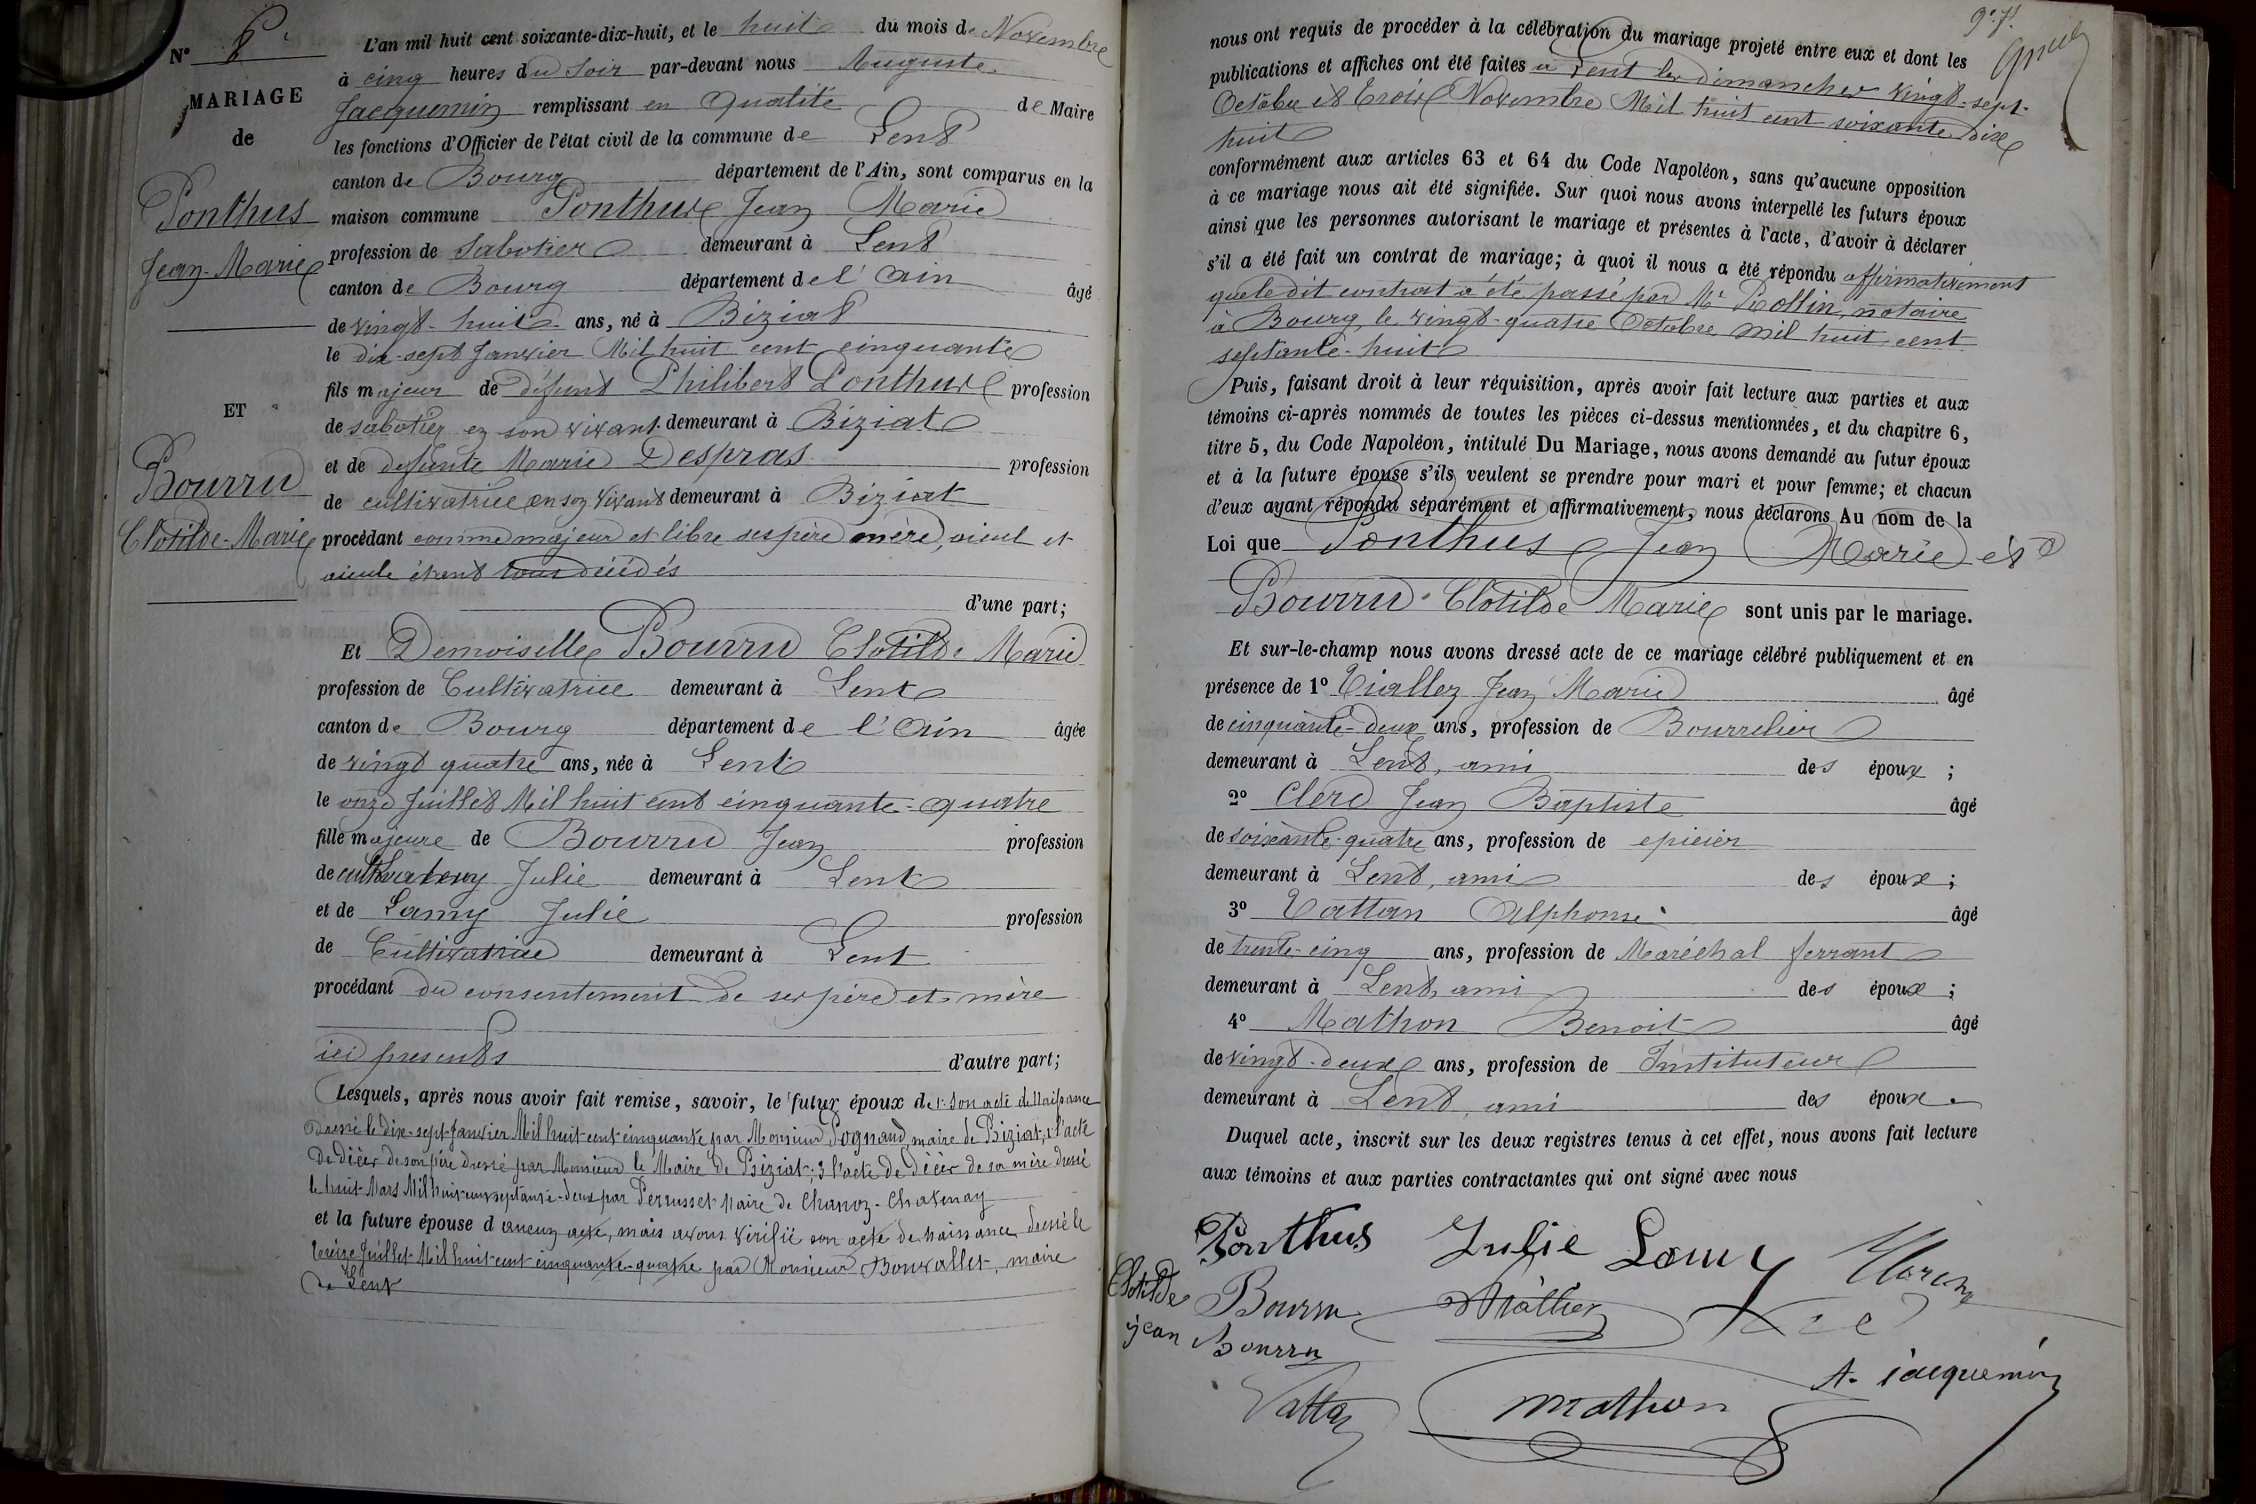 N° 8
MARIAGE
de
Ponthus
Jean-Marie
ET
Bourru
Clotilde-Marie
L'an mil huit cent soixante-dix-huit, et le huit du mois de Novembre
à cinq heures du soir par-devant nous Auguste
Jacquemin remplissant en qualité de Maire
les fonctions d'Officier de l'état civil de la commune de Lent
canton de Bourg département de l'Ain, sont comparus en la
maison commune Ponthus Jean Marie
profession de Sabotier demeurant à Lent
canton de Bourg département de l'Ain âgé
de vingt-huit ans, né à Biziat
le dix-sept Janvier Mil huit cent cinquante
fils majeur de défunt Philibert Ponthus profession
de sabotier en son vivant demeurant à Biziat
et de defunte Marie Despras profession
de cultivatrice en son vivant demeurant à Biziat
procédant comme majeur et libre ses père mère, aieul et
aieule étant tous décédés
d'une part;
Et Demoiselle Bourru Clotilde Marie
profession de Cultivatrice demeurant à Lent
canton de Bourg département de l'Ain âgée
de vingt quatre ans, née à Lent
le onze Juillet Mil huit cent cinquante-quatre
fille majeure de Bourru Jean profession
de cultivateur Julie demeurant à Lent
et de Lamy Julie profession
de Cultivatrice demeurant à Lent
procédant du consentement de ses père et mère
ici presents d'autre part;
Lesquels, après nous avoir fait remise, savoir, le futur époux de 1° son acte de Naissance
Dressé le dix-sept Janvier Mil huit cent cinquante par Monsieur Pognand, maire de Biziat; 2 l'acte
De décès de son père dressé par Monsieur le Maire de Biziat; 3 l'acte de décès de sa mère dressé
le huit Mars Mil huit cent septante-deux par Perrusset Maire de Chanoz-Chatenay
et la future épouse d aucun acte, mais avons vérifié son acte de naissance dressé le
treize Juillet Mil huit cent cinquante-quatre par Monsieur Bouvallet, maire
de Lent
nous ont requis de procéder à la célébration du mariage projeté entre eux et dont les
publications et affiches ont été faites a Lent les dimanches vingt-sept
Octobre et trois Novembre Mil huit cent soixante dix
huit
conformément aux articles 63 et 64 du Code Napoléon, sans qu'aucune opposition
à ce mariage nous ait été signifiée. Sur quoi nous avons interpellé les futurs époux
ainsi que les personnes autorisant le mariage et présentes à l'acte, d'avoir à déclarer
s'il a été fait un contrat de mariage; à quoi il nous a été répondu affirmativement
que le dit contrat a été passé par Me Rollin, notaire
à Bourg, le vingt-quatre Octobre mil huit cent
septante-huit
Puis, faisant droit à leur réquisition, après avoir fait lecture aux parties et aux
témoins ci-après nommés de toutes les pièces ci-dessus mentionnées, et du chapitre 6,
titre 5, du Code Napoléon, intitulé Du Mariage, nous avons demandé au futur époux
et à la future épouse s'ils veulent se prendre pour mari et pour femme; et chacun
d'eux ayant répondu séparément et affirmativement, nous déclarons Au nom de la
Loi que Ponthus Jean Marie et
Bourru Clotilde Marie sont unis par le mariage.
Et sur-le-champ nous avons dressé acte de ce mariage célébré publiquement et en
présence de 1° Viallez Jean Marie âgé
de cinquante-deux ans, profession de Bourrelier
demeurant à Lent, ami des époux;
2° Clerc Jean Baptiste âgé
de soixante-quatre ans, profession de epicier
demeurant à Lent, ami des époux;
3° Vattan Alphonse âgé
de trente-cinq ans, profession de Maréchal ferrant
demeurant à Lent, ami des époux;
4° Mathon Benoit âgé
de vingt-deux ans, profession de Instituteur
demeurant à Lent, ami des époux
Duquel acte, inscrit sur les deux registres tenus à cet effet, nous avons fait lecture
aux témoins et aux parties contractantes qui ont signé avec nous
Ponthus Julie Lamy
Clotilde Bourru
jean Bourru
A. jacquemin
Vattan mathon